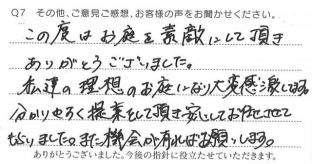 Q7 その他、ご意見ご感想、お客様の声をお聞かせください。
この度はお庭を素敵にして頂き
ありがとうございました。
私達の理想のお庭になり大変感激してます。
分かりやすく提案をして頂き安心してお任せさせて
もらいました。また機会が有ればお願いします。
ありがとうございました。今後の指針に役立たせていただきます。